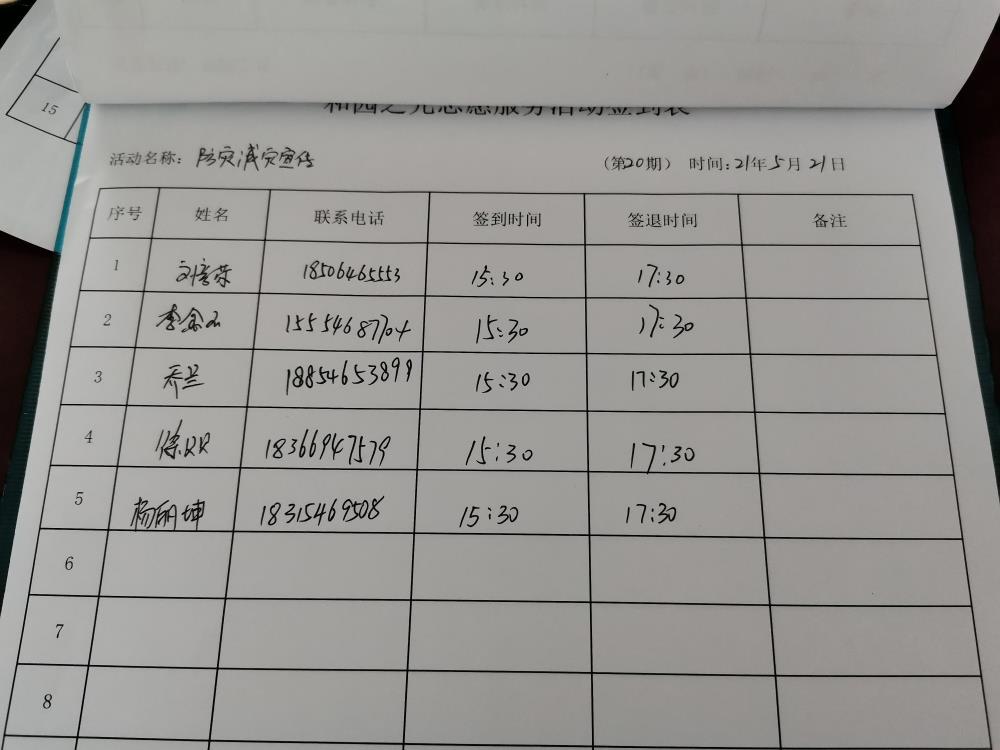 15
和园之光志愿服务活动签到表
活动名称：防灾减灾宣传 （第20期） 时间:21年5月21日
序号 姓名 联系电话 签到时间 签退时间 备注
1 刘培荣 18506465553 15:30 17:30
2 李金玉 15554687704 15:30 17:30
3 乔兰 18854653899 15:30 17:30
4 徐 18366947579 15:30 17:30
5 杨丽坤 18315469508 15:30 17:30
6
7
8